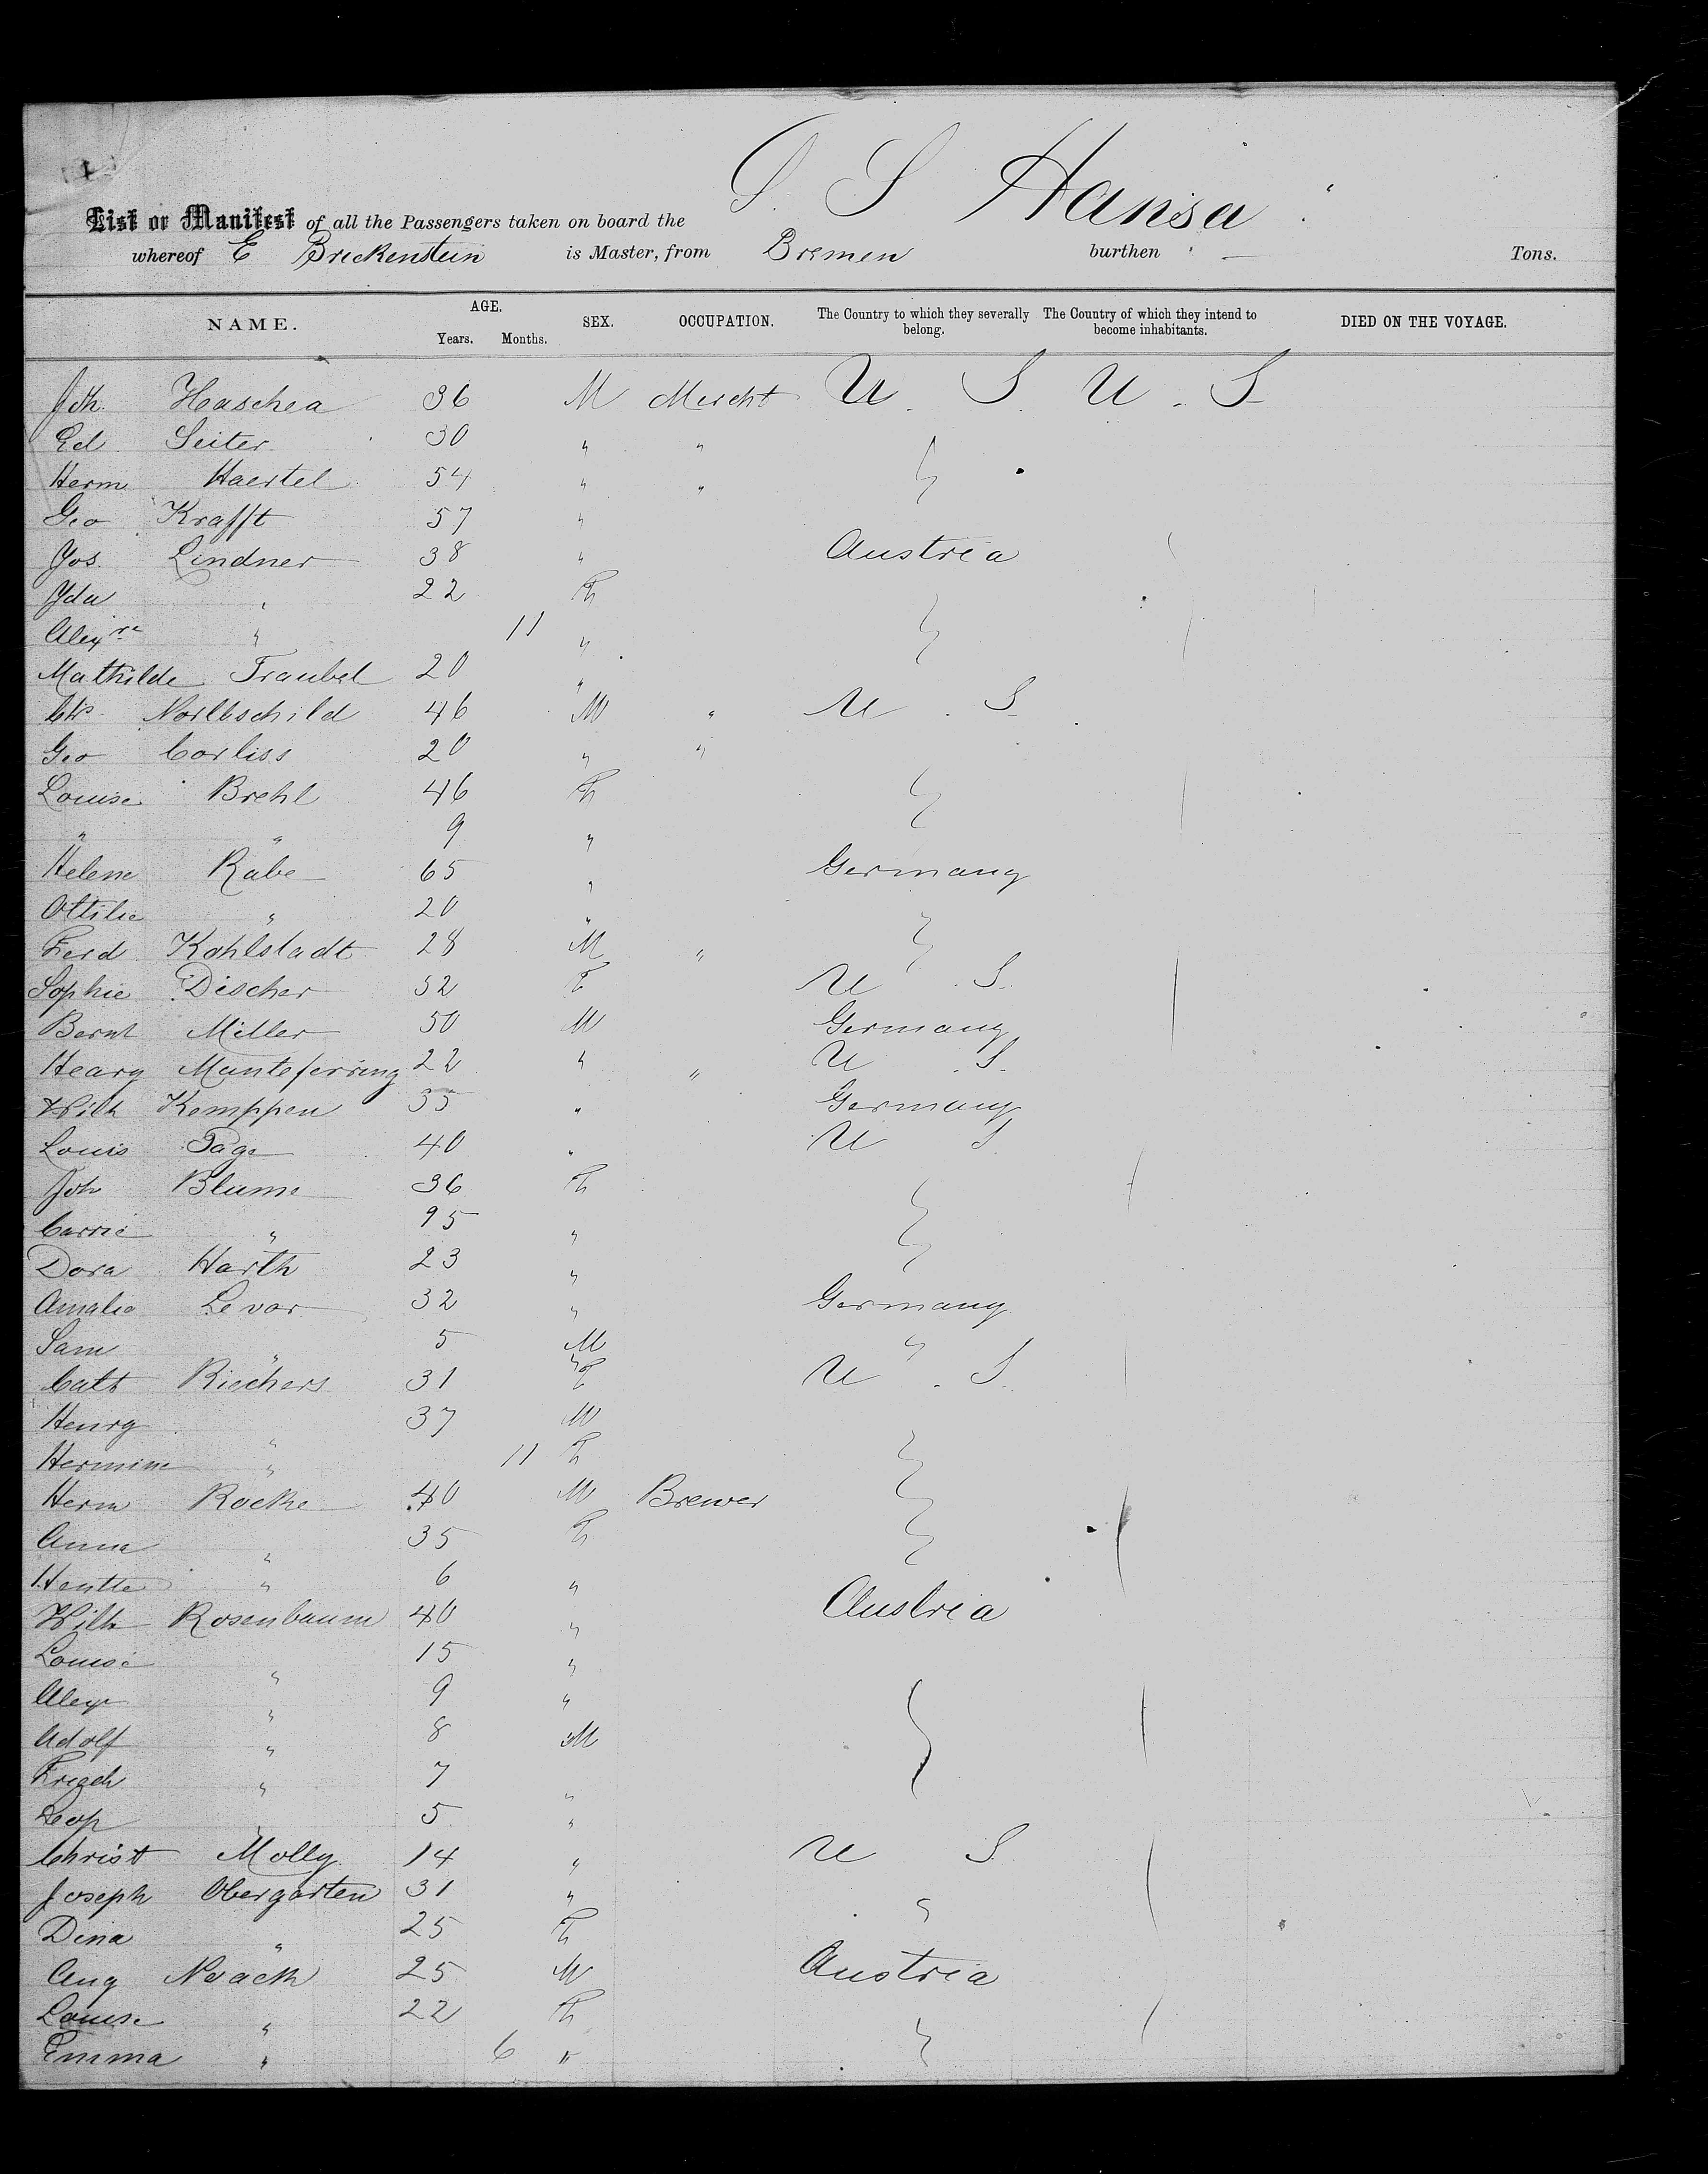 S. S Hansa
List or Manifest of all the Passengers taken on board the
whereof E Brickenstein is Master, from Bremen burthen — Tons.
NAME. AGE. Years. Months. SEX. OCCUPATION. The Country to which they severally belong. The Country of which they intend to become inhabitants. DIED ON THE VOYAGE.
Joh. Haschea 36 M Mercht U. S. U. S
Ed. Seiter 30 " "
Herm Haertel 54 " "
Geo Krafft 57 "
Jos. Lindner 38 " Austria
Ida " 22 F
" 11 "
Mathilde Traubel 20 "
46 M " U. S
Geo Corliss 20 " "
Louise Brehl 46 F
" " 9 "
Helene Rabe 65 " Germany
Ottilie " 20 "
Ferd Kohlstadt 28 M "
Sophie Discher 52 F U. S.
Bernh Miller 50 M Germany
Henry Munteferring 22 " " U. S.
Wilh Kemppen 35 " Germany
Louis Page 40 " U S
Joh Blume 36 F
Carrie "
Dora Harth 23 "
Amalie Levor 32 " Germany
Sam " 5 M "
Cath Riechers 31 F U. S.
Henry " 37 M
Hermine " 11 F
Herm Rocke 40 M Brewer
Anna " 35 F
" 6 "
Wilh Rosenbaum 40 " Austria
Louise " 15 "
Alex " 9 "
Adolf " 8 M
Friedh " 7 "
Leop " 5 "
Christ Molly 14 " U S
Joseph Obergarten 31 " "
Dina " 25 F
Aug Noack 25 M Austria
Louise " 22 F
Emma " 6 "